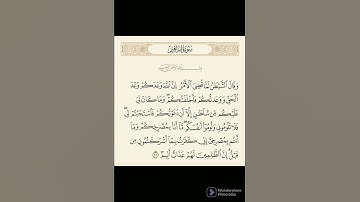 سورة إبراهيم
وَقَالَ ٱلشَّيۡطَٰنُ لَمَّا قُضِيَ ٱلۡأَمۡرُ إِنَّ ٱللَّهَ وَعَدَكُمۡ وَعۡدَ
ٱلۡحَقِّ وَوَعَدتُّكُمۡ فَأَخۡلَفۡتُكُمۡۖ وَمَا كَانَ لِيَ
عَلَيۡكُم مِّن سُلۡطَٰنٍ إِلَّآ أَن دَعَوۡتُكُمۡ فَٱسۡتَجَبۡتُمۡ لِيۖ
فَلَا تَلُومُونِي وَلُومُوٓاْ أَنفُسَكُمۖ مَّآ أَنَا۠ بِمُصۡرِخِكُمۡ وَمَآ
أَنتُم بِمُصۡرِخِيَّ إِنِّي كَفَرۡتُ بِمَآ أَشۡرَكۡتُمُونِ مِن
قَبۡلُۗ إِنَّ ٱلظَّٰلِمِينَ لَهُمۡ عَذَابٌ أَلِيمٞ
Wondershare
Filmora